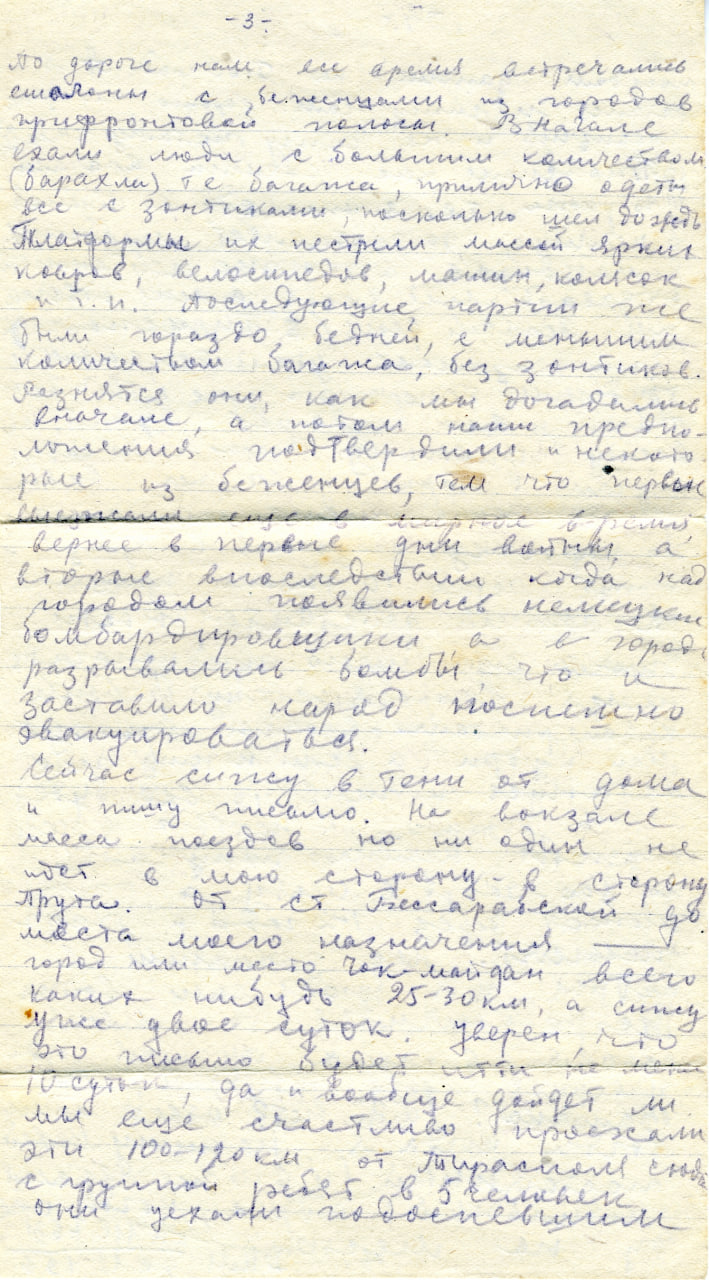 -3-
По дороге нам все время встречались
эшалоны с беженцами из городов
прифронтовой полосы. Вначале
ехали люди с большим количеством
(барахла) те багажа, прилично одеты
все с зонтиками, поскольку шел дождь
Платформы их пестрели массой ярких
ковров, велосипедов, машин, колясок
и т.п. Последующие партии же
были гораздо бедней, с меньшим
количеством багажа, без зонтиков.
Разнятся они, как мы догадались
вначале, а потом наши предпо-
ложения подтвердили и некото-
рые из беженцев, тем что первые
выезжали еще в мирное время,
вернее в первые дни войны, а
вторые впоследствии когда над
городом появились немецкие
бомбардировщики а в городе
разрывались бомбы, что и
заставило народ поспешно
эвакуироваться.
Сейчас сижу в тени от дома
и пишу письмо. На вокзале
масса поездов но ни один не
идет в мою сторону - в сторону
Прута. От ст Бессарабской до
места моего назначения —
город или место Чок-майдан всего
каких нибудь 25-30 км, а сижу
уже двое суток. Уверен, что
это письмо будет итти не менее
10 суток, да и вообще дойдет ли
мы еще счастливо проехали
эти 100-120 км от Тирасполя сюда
с группой ребят в 5 человек
они уехали подоспевшим